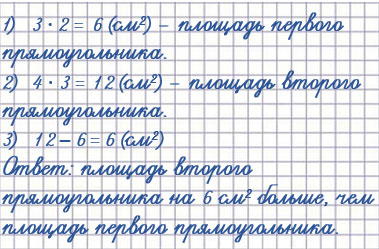 1) 3 · 2 = 6 (см²) – площадь первого
прямоугольника.
2) 4 · 3 = 12 (см²) – площадь второго
прямоугольника.
3) 12 – 6 = 6 (см²)
Ответ: площадь второго
прямоугольника на 6 см² больше, чем
площадь первого прямоугольника.